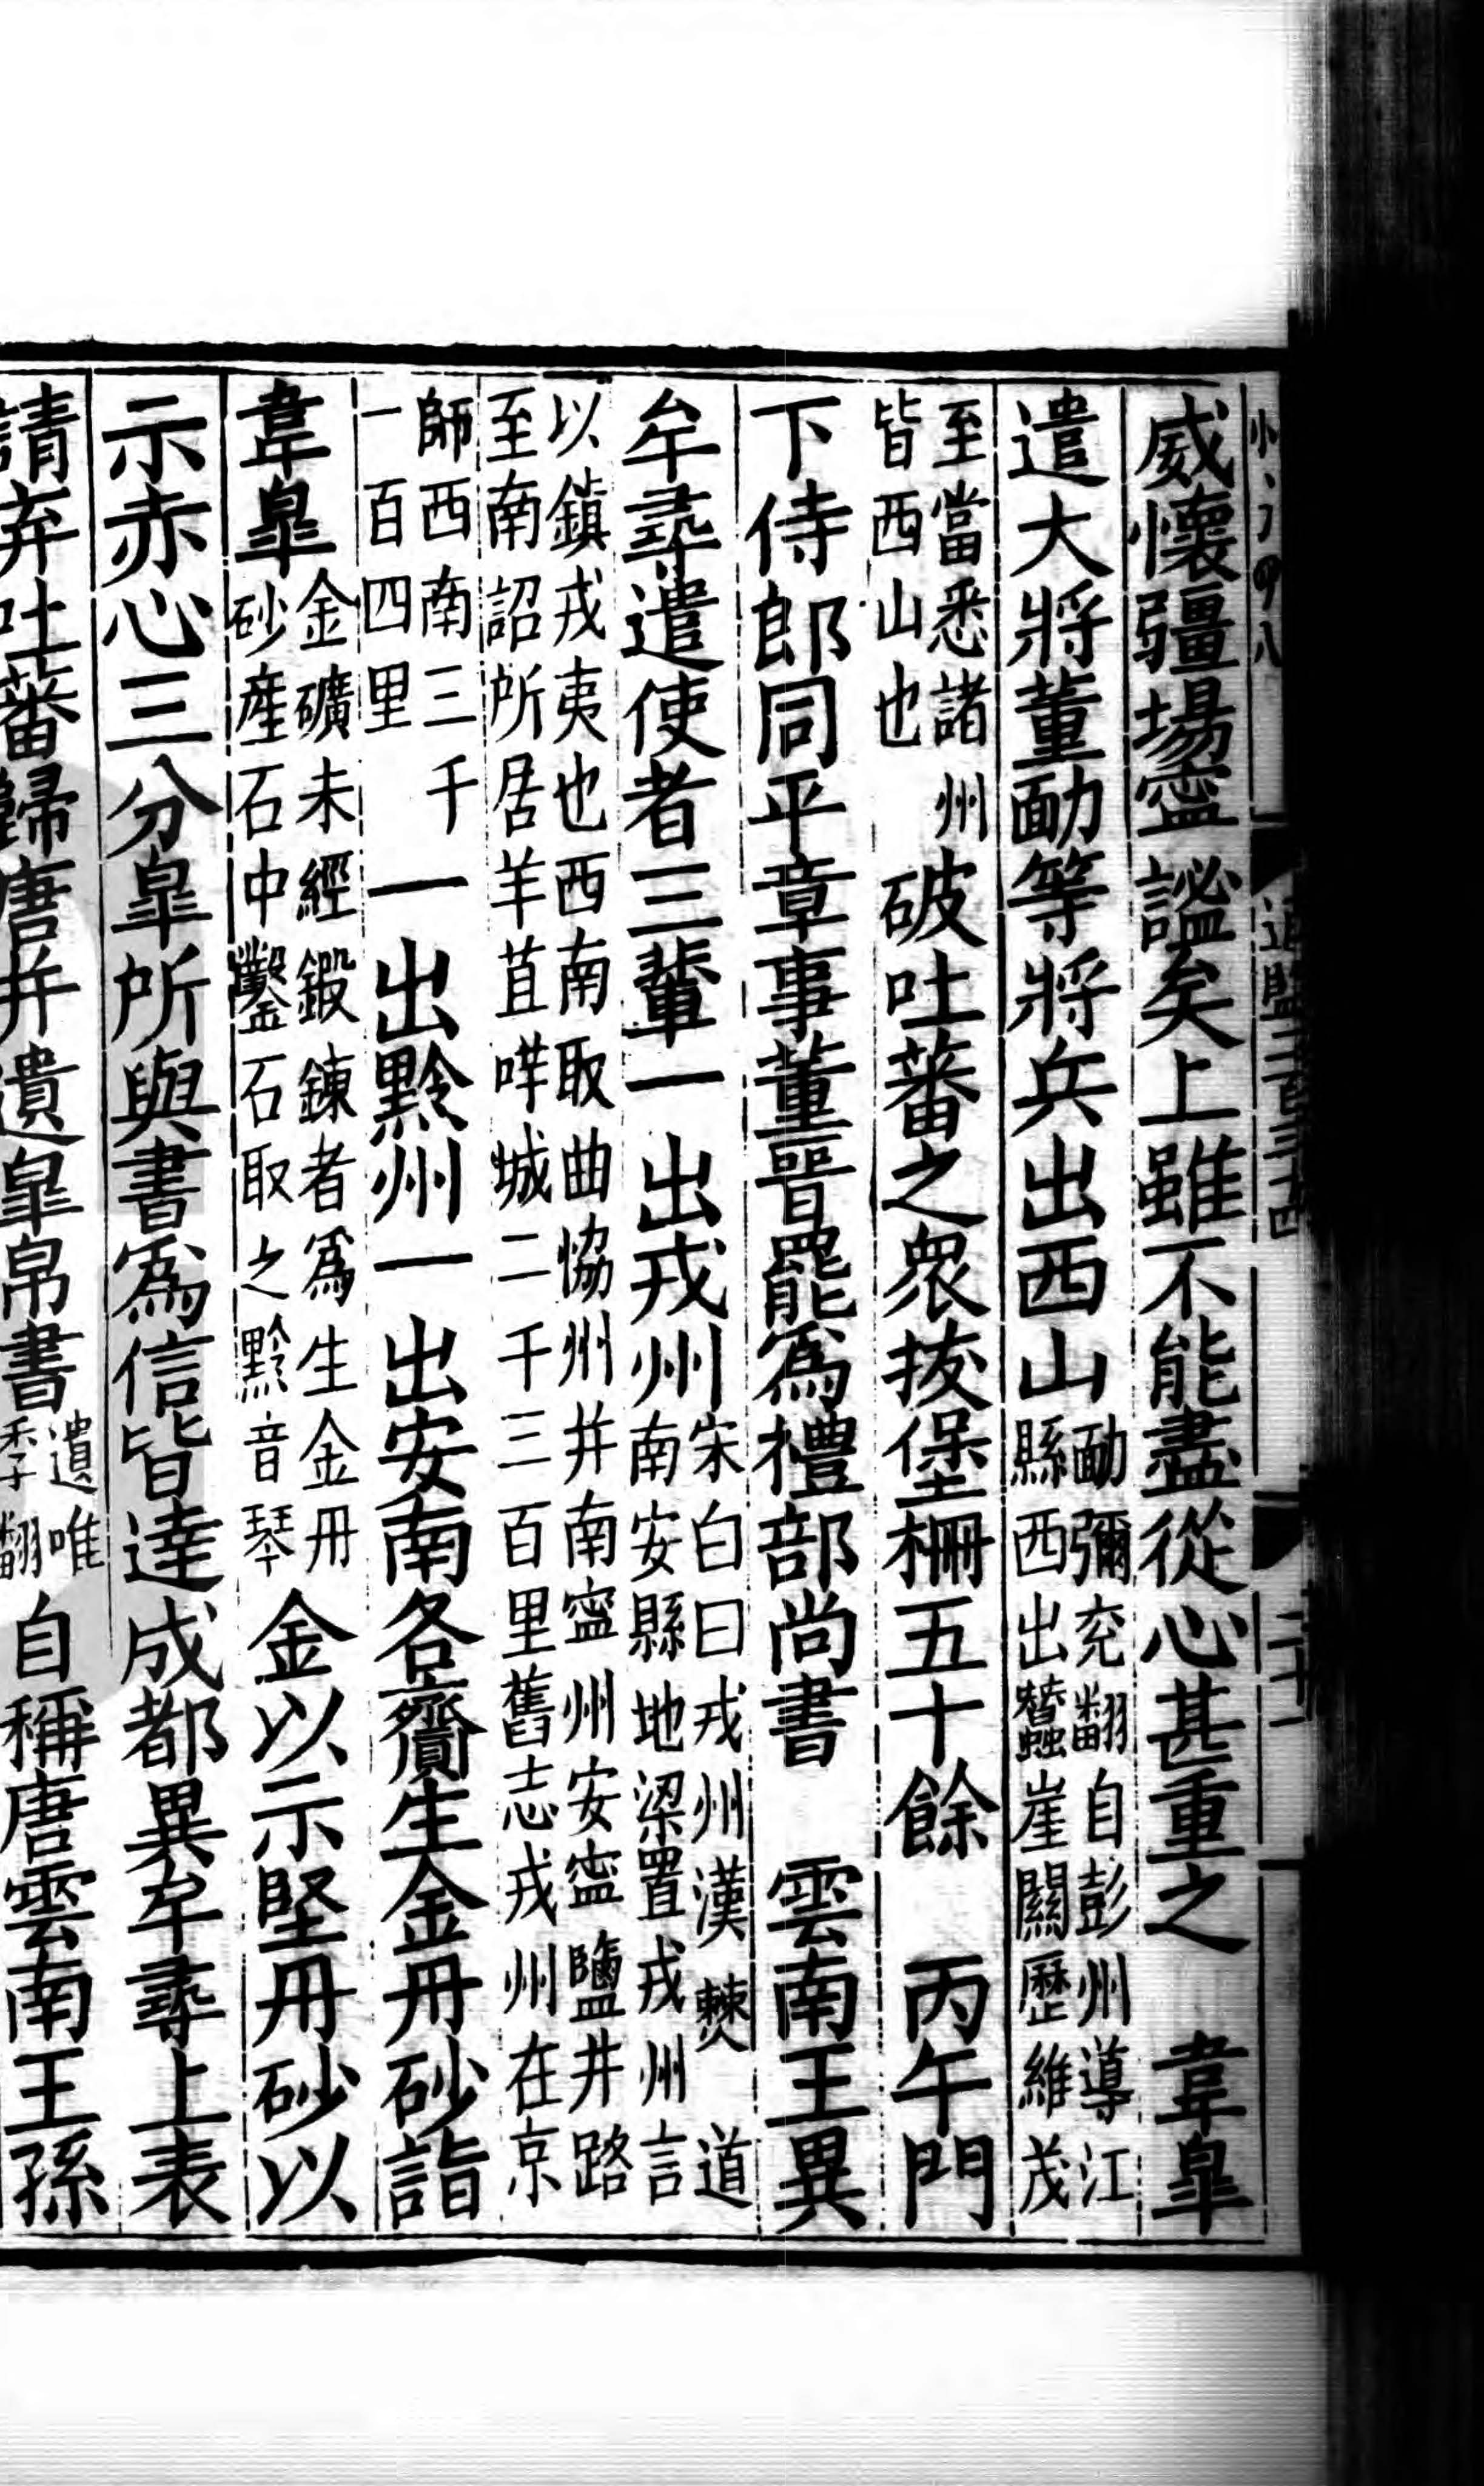 通鑑二百三十四 二十一
威懷疆場寧謐矣上雖不能盡從心甚重之 韋皐
遣大將董勔等將兵出西山勔彌兖翻自彭州導江縣西出蠶崖關歷維茂
至當悉諸州皆西山也破吐蕃之衆拔堡柵五十餘 丙午門
下侍郎同平章事董晉罷爲禮部尚書 雲南王異
牟尋遣使者三輩一出戎州宋白曰戎州漢僰道南安縣地梁置戎州言
以鎮戎夷也西南取曲恊州并南寧州安寧鹽井路至南詔所居羊苴咩城二千三百里舊志戎州在京
師西南三千一百四里一出黔州一出安南各齎生金丹砂詣
韋皐金礦未經鍛鍊者爲生金丹砂產石中鑿石取之黔音琴金以示堅丹砂以
示赤心三分皐所與書爲信皆達成都異牟尋上表
請弃吐蕃歸唐并遺皐帛書遺唯季翻自稱唐雲南王孫